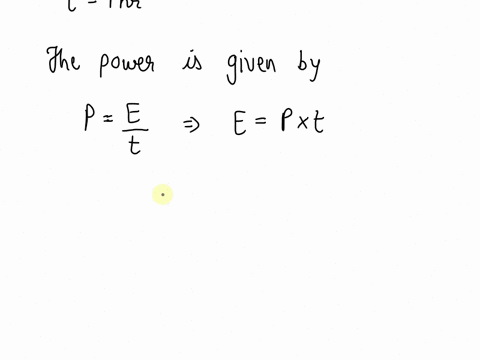 t = 1 hr
The power is given by
P = E/t ⇒ E = P × t